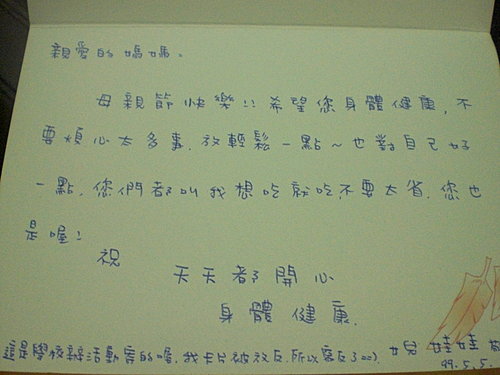 親愛的媽媽、
母親節快樂!! 希望您身體健康, 不
要煩心太多事. 放輕鬆一點~也對自己好
一點, 您們都叫我想吃就吃, 不要太省, 您也
是喔!
祝
天天都開心
身體健康.
女兒 娃娃 敬
99.5.5
這是學校辦活動寄的喔, 我卡片被放反. 所以寫反了==)